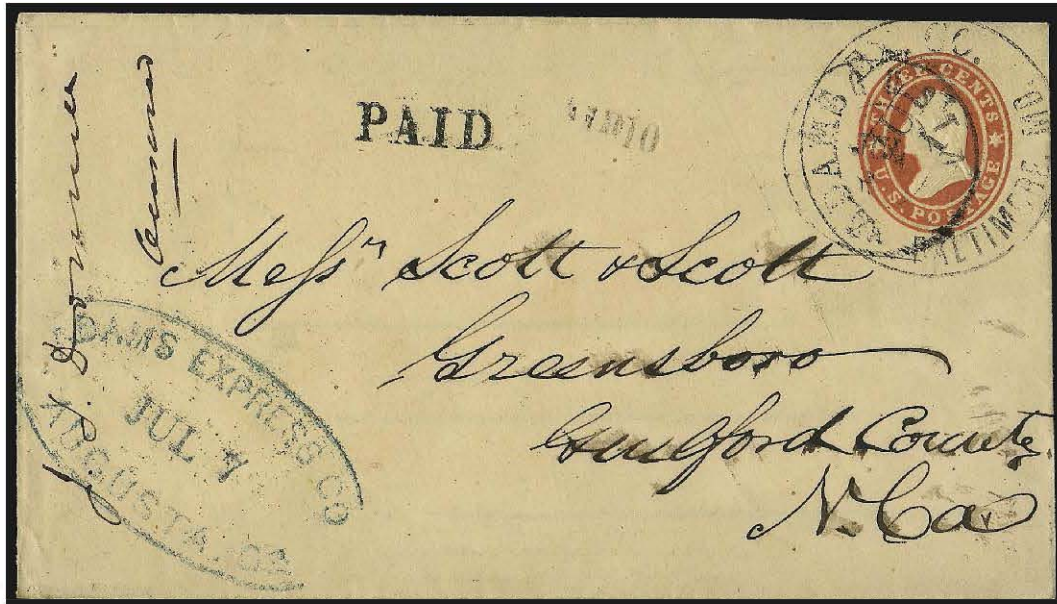 PAID
10
ADAMS EX. CO.
BALTIMORE MD.
THREE CENTS
U.S. POSTAGE
Messrs Scott & Scott
Greensboro
Guilford County
N. Ca
ADAMS EXPRESS CO
JUL 7
AUGUSTA. GA